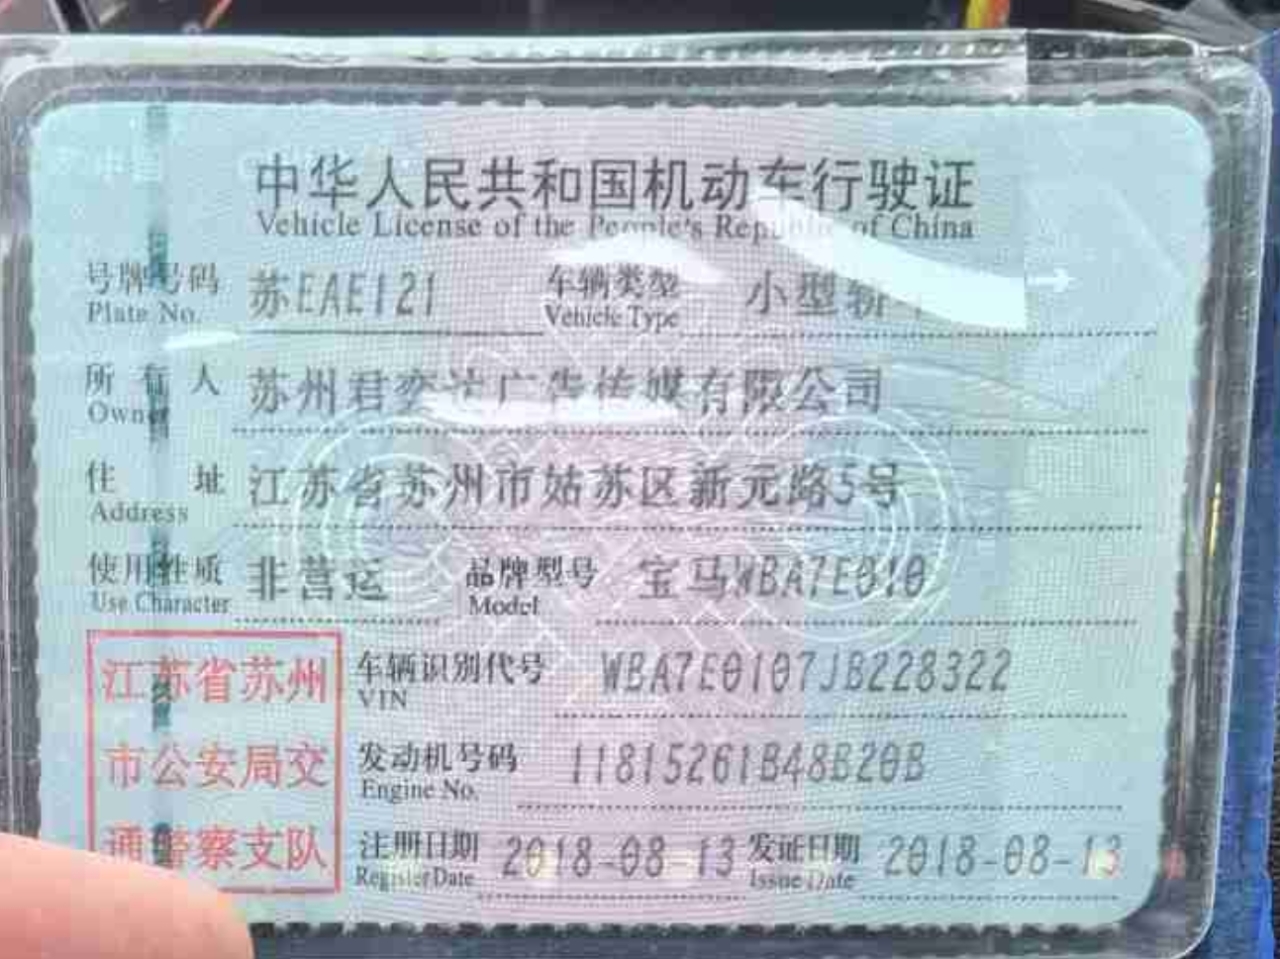 中华人民共和国机动车行驶证
Vehicle License of the People's Republic of China
号牌号码 苏EAE121 车辆类型 小型轿
Plate No. Vehicle Type
所有人 苏州君奕达广告传媒有限公司
Owner
住址 江苏省苏州市姑苏区新元路5号
Address
使用性质 非营运 品牌型号 宝马WBA7E010
Use Character Model
江苏省苏州 车辆识别代号 WBA7E0107JB228322
VIN
市公安局交 发动机号码 11815261B48B20B
Engine No.
通警察支队 注册日期 2018-08-13 发证日期 2018-08-13
Register Date Issue Date